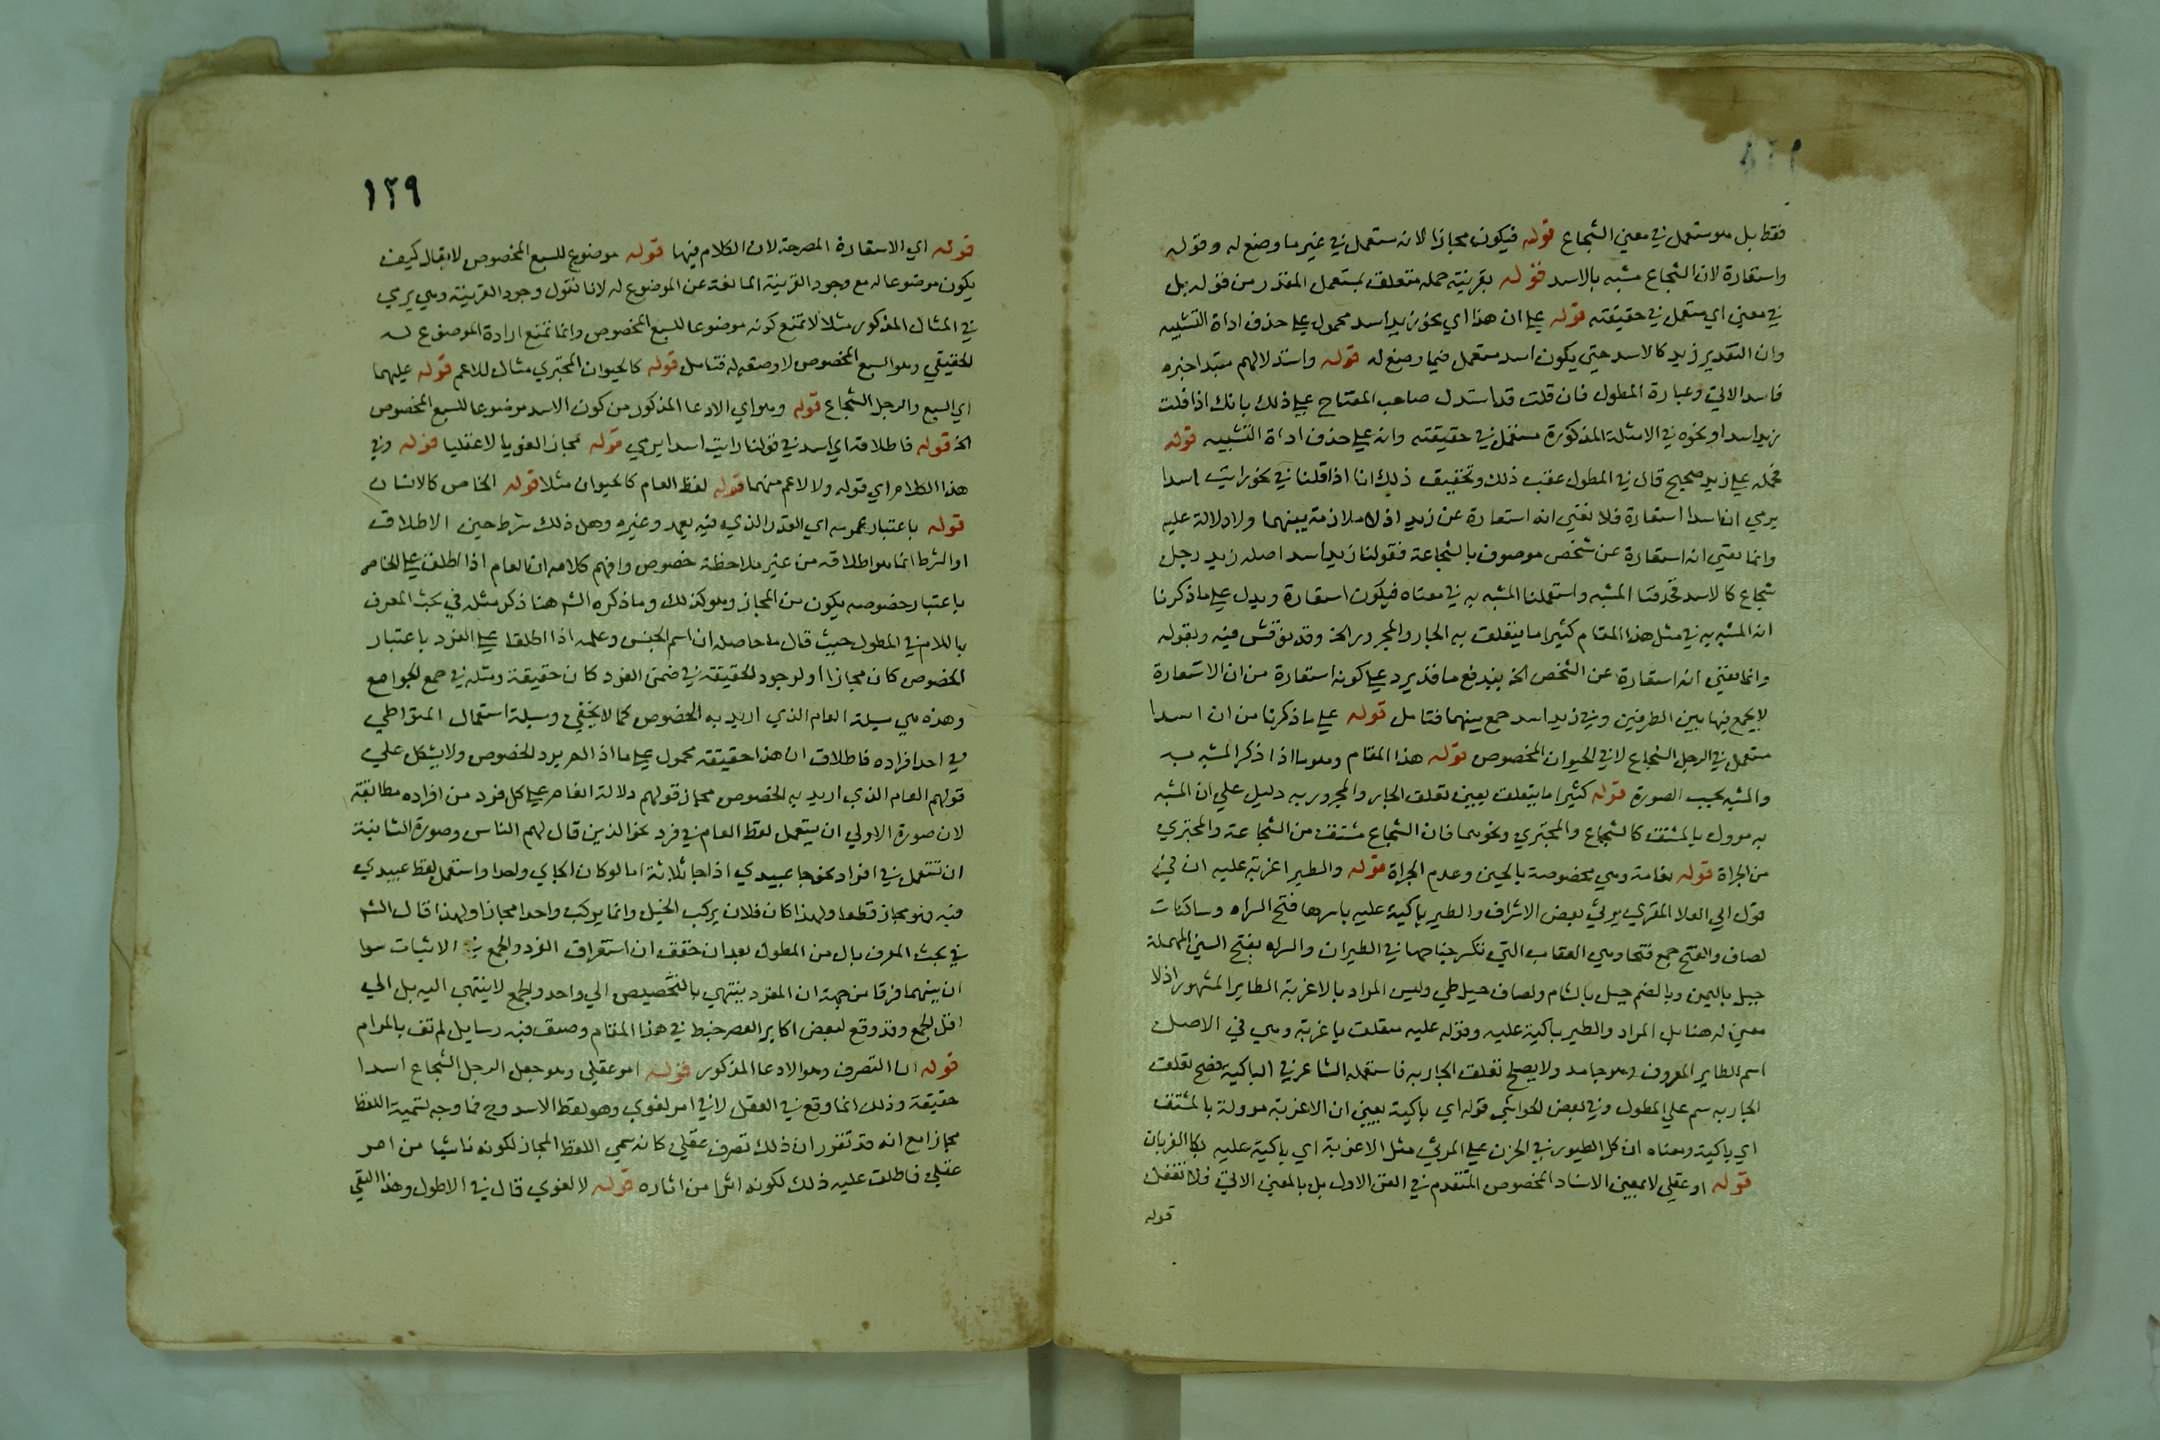 فقط بل هو مستعمل في معني الشجاع قوله فيكون مجازا لانه مستعمل في غير ما وضع له وقوله
واستعارة لان الشجاع مشبه بالاسد قوله بقرينة حمله متعلق بمستعمل المقدر من قوله بل
في معني اي مستعمل في حقيقته قوله علي ان هذا اي نحو زيد اسد محمول علي حذف اداة التشبيه
وان التقدير زيد كالاسد حتي يكون اسد مستعمل فيما وضع له قوله واستدلالهم مبتدا خبره
فاسد الاتي وعبارة المطول فان قلت قد استدل صاحب المفتاح علي ذلك بانك اذا قلت
زيد اسد او نحوه في الامثلة المذكورة مستعمل في حقيقته وانه علي حذف اداة التشبيه قوله
فحمله علي زيد صحيح قال في المطول عقب ذلك وتحقيق ذلك انا اذا قلنا في نحو رايت اسدا
يرمي ان اسدا استعارة فلا نعني انه استعارة عن زيد اذ لا ملازمة بينهما ولا دلالة عليه
وانما نعني انه استعارة عن شخص موصوف بالشجاعة فقولنا زيد اسد اصله زيد رجل
شجاع كالاسد فحذفنا المشبه واستعملنا المشبه به في معناه فيكون استعارة ويدل علي ما ذكرنا
ان المشبه به في مثل هذا المقام كثيرا ما يتعلق به الجار والمجرور الخ وقد نوقش فيه وبقوله
وانما نعني انه استعارة عن الشخص الخ يندفع ما قد يرد علي كونه استعارة من ان الاستعارة
لا يجمع فيها بين الطرفين وفي زيد اسد جمع بينهما فتامل قوله علي ما ذكرنا من ان اسدا
مستعمل في الرجل الشجاع لا في الحيوان المخصوص قوله هذا المقام وهو ما اذا ذكر المشبه به
والمشبه بحسب الصورة قوله كثيرا ما يتعلق يعني تعلق الجار والمجرور به دليل علي ان المشبه
به موول بالمشتق كالشجاع والمجتري ونحوهما فان الشجاع مشتق من الشجاعة والمجتري
من الجراة قوله نعامة وهي مخصوصة بالجبن وعدم الجراة قوله والطير اغربة عليه ان في
قول ابي العلا المعري يرثي بعض الاشراف والطير باكية عليه باسرها فتخ السراه وساكنات
لصاف والفتخ جمع فتخا وهي العقاب التي تكسر جناحها في الطيران والسراه بفتح السين المهملة
جبل باليمن وبالضم جبل بالشام ولصاف جبل طي وليس المراد بالاغربة الطاير المشهور اذ لا
معني له هنا بل المراد والطير باكية عليه وقوله عليه متعلق باغربة وهي في الاصل
اسم الطاير المعروف وهو جامد ولا يصلح تعلق الجار به فاستعمله الشاعر في الباكية فصح تعلق
الجار به سم علي المطول وفي بعض الحواشي قوله اي باكية يعني ان الاغربة موولة بالمشتق
اي باكية ومعناه ان كل الطيور في الحزن علي المرثي مثل الاغربة اي باكية عليه بكا الغربان
قوله او عقلي لا بمعني الاسناد المخصوص المتقدم في الفن الاول بل بالمعني الاتي فلا تغفل
قوله
١٢٩
قوله اي الاستعارة المصرحة لان الكلام فيها قوله موضوع للسبع المخصوص لا يقال كيف
يكون موضوعا له مع وجود القرينة المانعة عن الموضوع له لانا نقول وجود القرينة وهي يرمي
في المثال المذكور مثلا لا تمنع كونه موضوعا للسبع المخصوص وانما تمنع ارادة الموضوع له
الحقيقي وهو السبع المخصوص لا وضعه له فتامل قوله كالحيوان المجتري مثال للاعم قوله عليهما
اي السبع والرجل الشجاع قوله وهو اي الادعا المذكور من كون الاسد موضوعا للسبع المخصوص
الخ قوله فاطلاقه اي اسد في قولنا رايت اسدا يرمي قوله مجازا لغويا لا عقليا قوله وفي
هذا الكلام اي قوله ولا لاعم منهما قوله لفظ العام كالحيوان مثلا قوله الخاص كالانسان
قوله باعتبار عمومه اي القدر الذي فيه يعمه وغيره وهل ذلك شرط حين الاطلاق
او الشرط انما هو اطلاقه من غير ملاحظة خصوص وافهم كلامه ان العام اذا اطلق علي الخاص
باعتبار خصوصه يكون من المجاز وهو كذلك وما ذكره الش هنا ذكر مثله في بحث المعرف
باللام في المطول حيث قال ما حاصله ان اسم الجنس وعلمه اذا اطلقا علي الفرد باعتبار
الخصوص كان مجازا او لوجود الحقيقة في ضمن الفرد كان حقيقة ومثله في جمع الجوامع
وهذه هي مسيلة العام الذي اريد به الخصوص كما لا يخفي ومسيلة استعمال المتواطي
في احد افراده فاطلاق ان هذا حقيقة محمول علي ما اذا لم يرد الخصوص ولا يشكل علي
قولهم العام الذي اريد به الخصوص مجاز قولهم دلالة العام علي كل فرد من افراده مطابقة
لان صورة الاولي ان يستعمل لفظ العام في فرد نحو الذين قال لهم الناس وصورة الثانية
ان تستعمل في افراد نحو جا عبيدي اذا جا ثلاثة اما لو كان الجاي واحدا واستعمل لفظ عبيدي
فيه فهو مجاز قطعا ولهذا كان فلان يركب الخيل وانما يركب واحدا مجازا ولهذا قال الش
في بحث المعرف بال من المطول بعد ان حقق ان استغراق الفرد والجمع في الاثبات سوا
ان بينهما فرقا من جهة ان المفرد ينتهي بالتخصيص الي واحد والجمع لا ينتهي اليه بل الي
اقل الجمع وقد وقع لبعض اكابر العصر خبط في هذا المقام وصنف فيه رسايل لم تف بالمرام
قوله ان التصرف وهو الادعا المذكور قوله امر عقلي وهو جعل الرجل الشجاع اسدا
حقيقة وذلك انما وقع في العقل لا في امر لغوي وهو لفظ الاسد وح فما وجه تسمية اللفظ
مجازا مع انه قد تقرر ان ذلك تصرف عقلي كانه سمي اللفظ المجاز لكونه ناشيا من امر
عقلي فاطلق عليه ذلك لكونه اثرا من اثاره قوله لا لغوي قال في الاطول وهذا القي